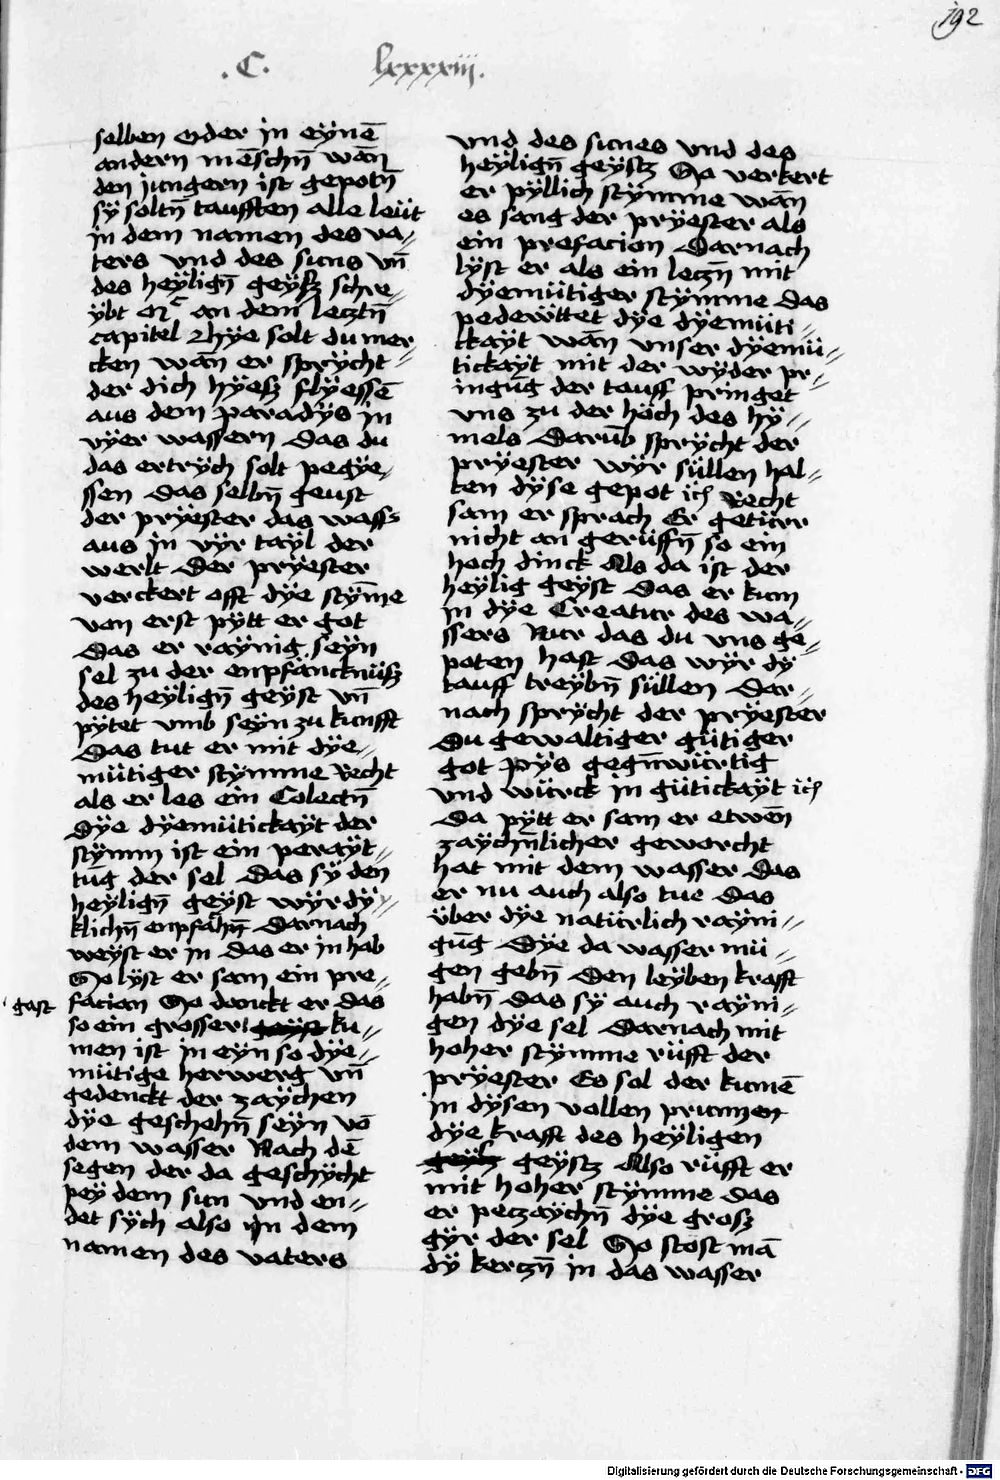 192
.C. lxxxxiii.
selben oder in eynē
andern mēschn̄ wān
den jungern ist gepotn̄
sÿ soltn̄ taufften alle leüt
in dem namen des va-//
ters vnd des suns vn̄
des heÿlign̄ geÿstz schre-//
ÿbt an dem lecztn̄
capitel hÿe solt du mer-//
cken wān er sprÿcht
der dich hÿesz flÿessē
aus dem paradÿs in
vÿer wassern Das du
das ertrÿch solt pegÿe-//
ssen Das selbn̄ geust
der prÿester das wass
aus in vÿr taÿl der
werlt Der prÿester
verckert offt dÿe stÿm̄e
von erst pÿtt er got
Das er raÿnig seÿn
sel zu der enpfäncknüsz
des heÿlign̄ geÿst vn̄
pÿtet vmb seÿn zu kunfft
Das tut er mit dÿe-//
mütiger stÿmme Recht
als er les ein Colectn̄
Dÿe dÿemütickaÿt der
stÿmm ist ein peraÿt-//
tūg der sel Das sÿ den
heÿlign̄ geÿst wÿrdÿ-//
klichn̄ enpfahn̄ Darnach
weÿst er in das er in hab
So lÿst er sam ein pre-//
gast
facian So danckt er das
so ein grosser geÿst ku-//
men ist in eÿn so dÿe-//
mütige herwerg vn̄
gedenckt der zaÿchen
dÿe geschehn̄ seÿn vō
dem wasser Nach dē
segen der da geschÿcht
peÿ dem sun vnd en-//
det sÿch also In dem
namen des vaters
vnd des sunes vnd des
heÿlign̄ geÿstz So verkert
er pÿllich stÿmme wān
es sang der prÿester als
ein prefacion Darnach
lÿst er als ein leczn̄ mit
dÿemütiger stÿmme das
pedewttet dÿe dÿemüti-//
ckaÿt wān vnser dÿemü-//
tickaÿt mit der wÿder pr-//
ingūg der tauff pringet
vns zu der höch des hÿ-//
mels Darūb sprÿcht der
prÿester wÿr süllen hal-//
ten dÿse gepot ich Recht
sam er sprach Er getürr
nicht an gerüffn̄ so ein
hoch dinck Als da ist der
heÿlig geÿst Das er kum
in dÿe Creatur des wa-//
ssers Nur das du vns ge-//
poten hast Das wÿr dÿ
tauff treÿbn̄ süllen Dar-//
nach sprÿcht der prÿester
Du gewaltiger gütiger
got pÿs gegn̄würtig
vnd würck in gütickaÿt ich
Da pÿtt er sam er etwēn
zaÿchn̄licher geworcht
hat mit dem wasser Das
er nu auch also tue Das
über dÿe natürlich raÿni-//
gūg Dÿe da wasser mü-//
gen gebn̄ Den leÿben krafft
habn̄ Das sÿ auch raÿni-//
gen dÿe sel Darnach mit
hoher stÿmme rüfft der
prÿester Es sol der kumē
in dÿsen vollen prunnen
dÿe krafft des heÿligen
geÿstz Also rüfft er
mit hoher stÿmme Das
er peczaÿchn̄ dÿe grosz
gÿr der sel So stöst mā
dÿ kerczn̄ in das wasser
Digitalisierung gefördert durch die Deutsche Forschungsgemeinschaft - DFG